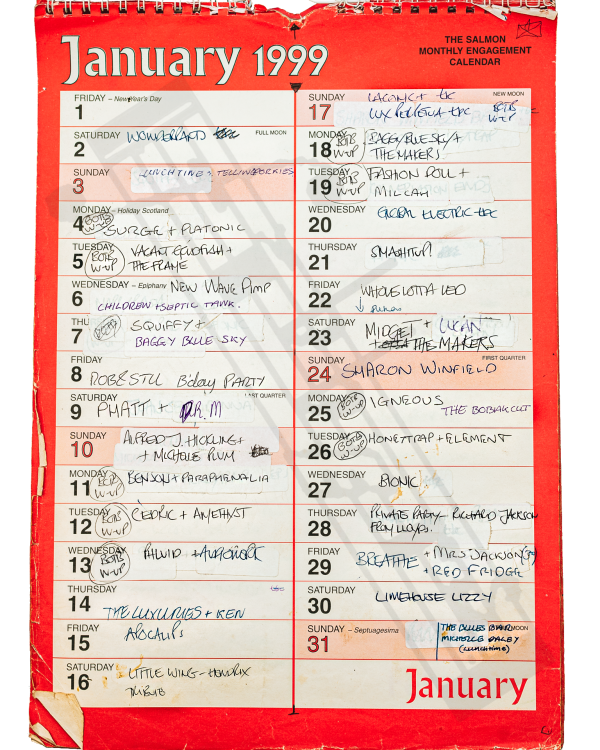 January 1999
THE SALMON
MONTHLY ENGAGEMENT
CALENDAR
FRIDAY – New Year's Day
1
SATURDAY
FULL MOON
2
WONDERLAND
SUNDAY
3
LUNCHTIME:
MONDAY – Holiday Scotland
4
BOTB W-UP
SURGE + PLATONIC
TUESDAY
5
BOTB W-UP
VACANT GOLDFISH +
THE FRAME
WEDNESDAY – Epiphany
6
NEW WAVE PIMP
CHILDREN + SEPTIC TANK.
THU
7
SQUIFFY +
BAGGY BLUE SKY
FRIDAY
8
ROB & STU B'day PARTY
SATURDAY
LAST QUARTER
9
PHATT +
SUNDAY
10
ALFRED J. HICKLING +
+ MICHELE PLUM
MONDAY
11
BOTB W-UP
BENSON + PARAPHENALIA
TUESDAY
12
BOTB W-UP
CEDRIC + AMETHYST
WEDNESDAY
13
BOTB W-UP
THURSDAY
14
THE LUXURIES + KEN
FRIDAY
15
SATURDAY
16
LITTLE WING – HENDRIX
TRIBUTE
SUNDAY
NEW MOON
17
LACONIC + tbc
LUX PERPETUA + tbc
BOTB W-UP
MONDAY
18
BOTB W-UP
BAGGY BLUE SKY +
THE MAKERS
TUESDAY
19
BOTB W-UP
FASHION DOLL +
WEDNESDAY
20
GLOBAL ELECTRIC + tbc
THURSDAY
21
SMASHITUP!
FRIDAY
22
WHOLE LOTTA LED
SATURDAY
23
MIDGET +
THE MAKERS
SUNDAY
FIRST QUARTER
24
SHARON WINFIELD
MONDAY
25
BOTB W-UP
IGNEOUS
TUESDAY
26
BOTB W-UP
HONEYTRAP + ELEMENT
WEDNESDAY
27
BIONIC
THURSDAY
28
PRIVATE PARTY – RICHARD JACKSON
FROM LLOYDS.
FRIDAY
29
BREATHE
+ MRS JACKSON
+ RED FRIDGE
SATURDAY
30
LIMEHOUSE LIZZY
SUNDAY – Septuagesima
MOON
31
THE BLUES BEAR
MICHELLE DALEY
(LUNCHTIME)
January